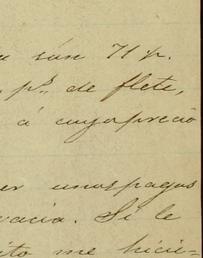 són 71 p.
ps. de flete,
á cuyo precio
unos pagos
vacia. Si le
me hicie=